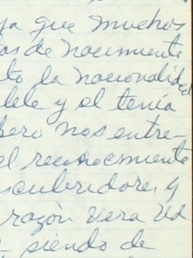 ya que muchos
as de nacimiento
to la nacionalidad
lele y el tenía
pero nos entre-
el reconocimiento
scubridores y
razón vera Ud
siendo de